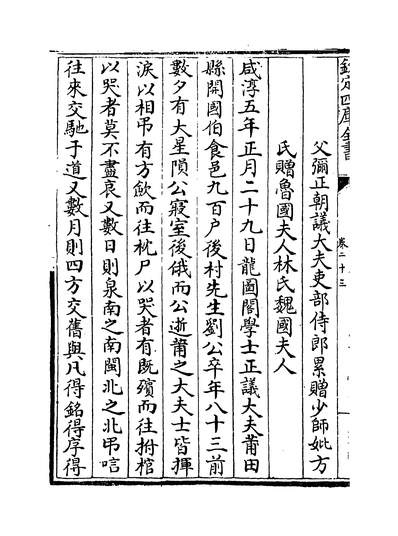 欽定四庫全書
卷二十三
父彌正朝議大夫吏部侍郎累贈少師妣方
氏贈魯國夫人林氏魏國夫人
咸淳五年正月二十九日龍圖閣學士正議大夫莆田
縣開國伯食邑九百戶後村先生劉公卒年八十三前
數夕有大星隕公寢室後俄而公逝莆之大夫士皆揮
淚以相弔有方歛而往枕尸以哭者有既殯而往拊棺
以哭者莫不盡哀又數日則泉南之南閩北之北弔唁
往來交馳于道又數月則四方交舊與凡得銘得序得